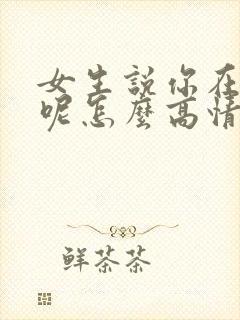 女生説你在
呢怎麽高情
鲜茶茶